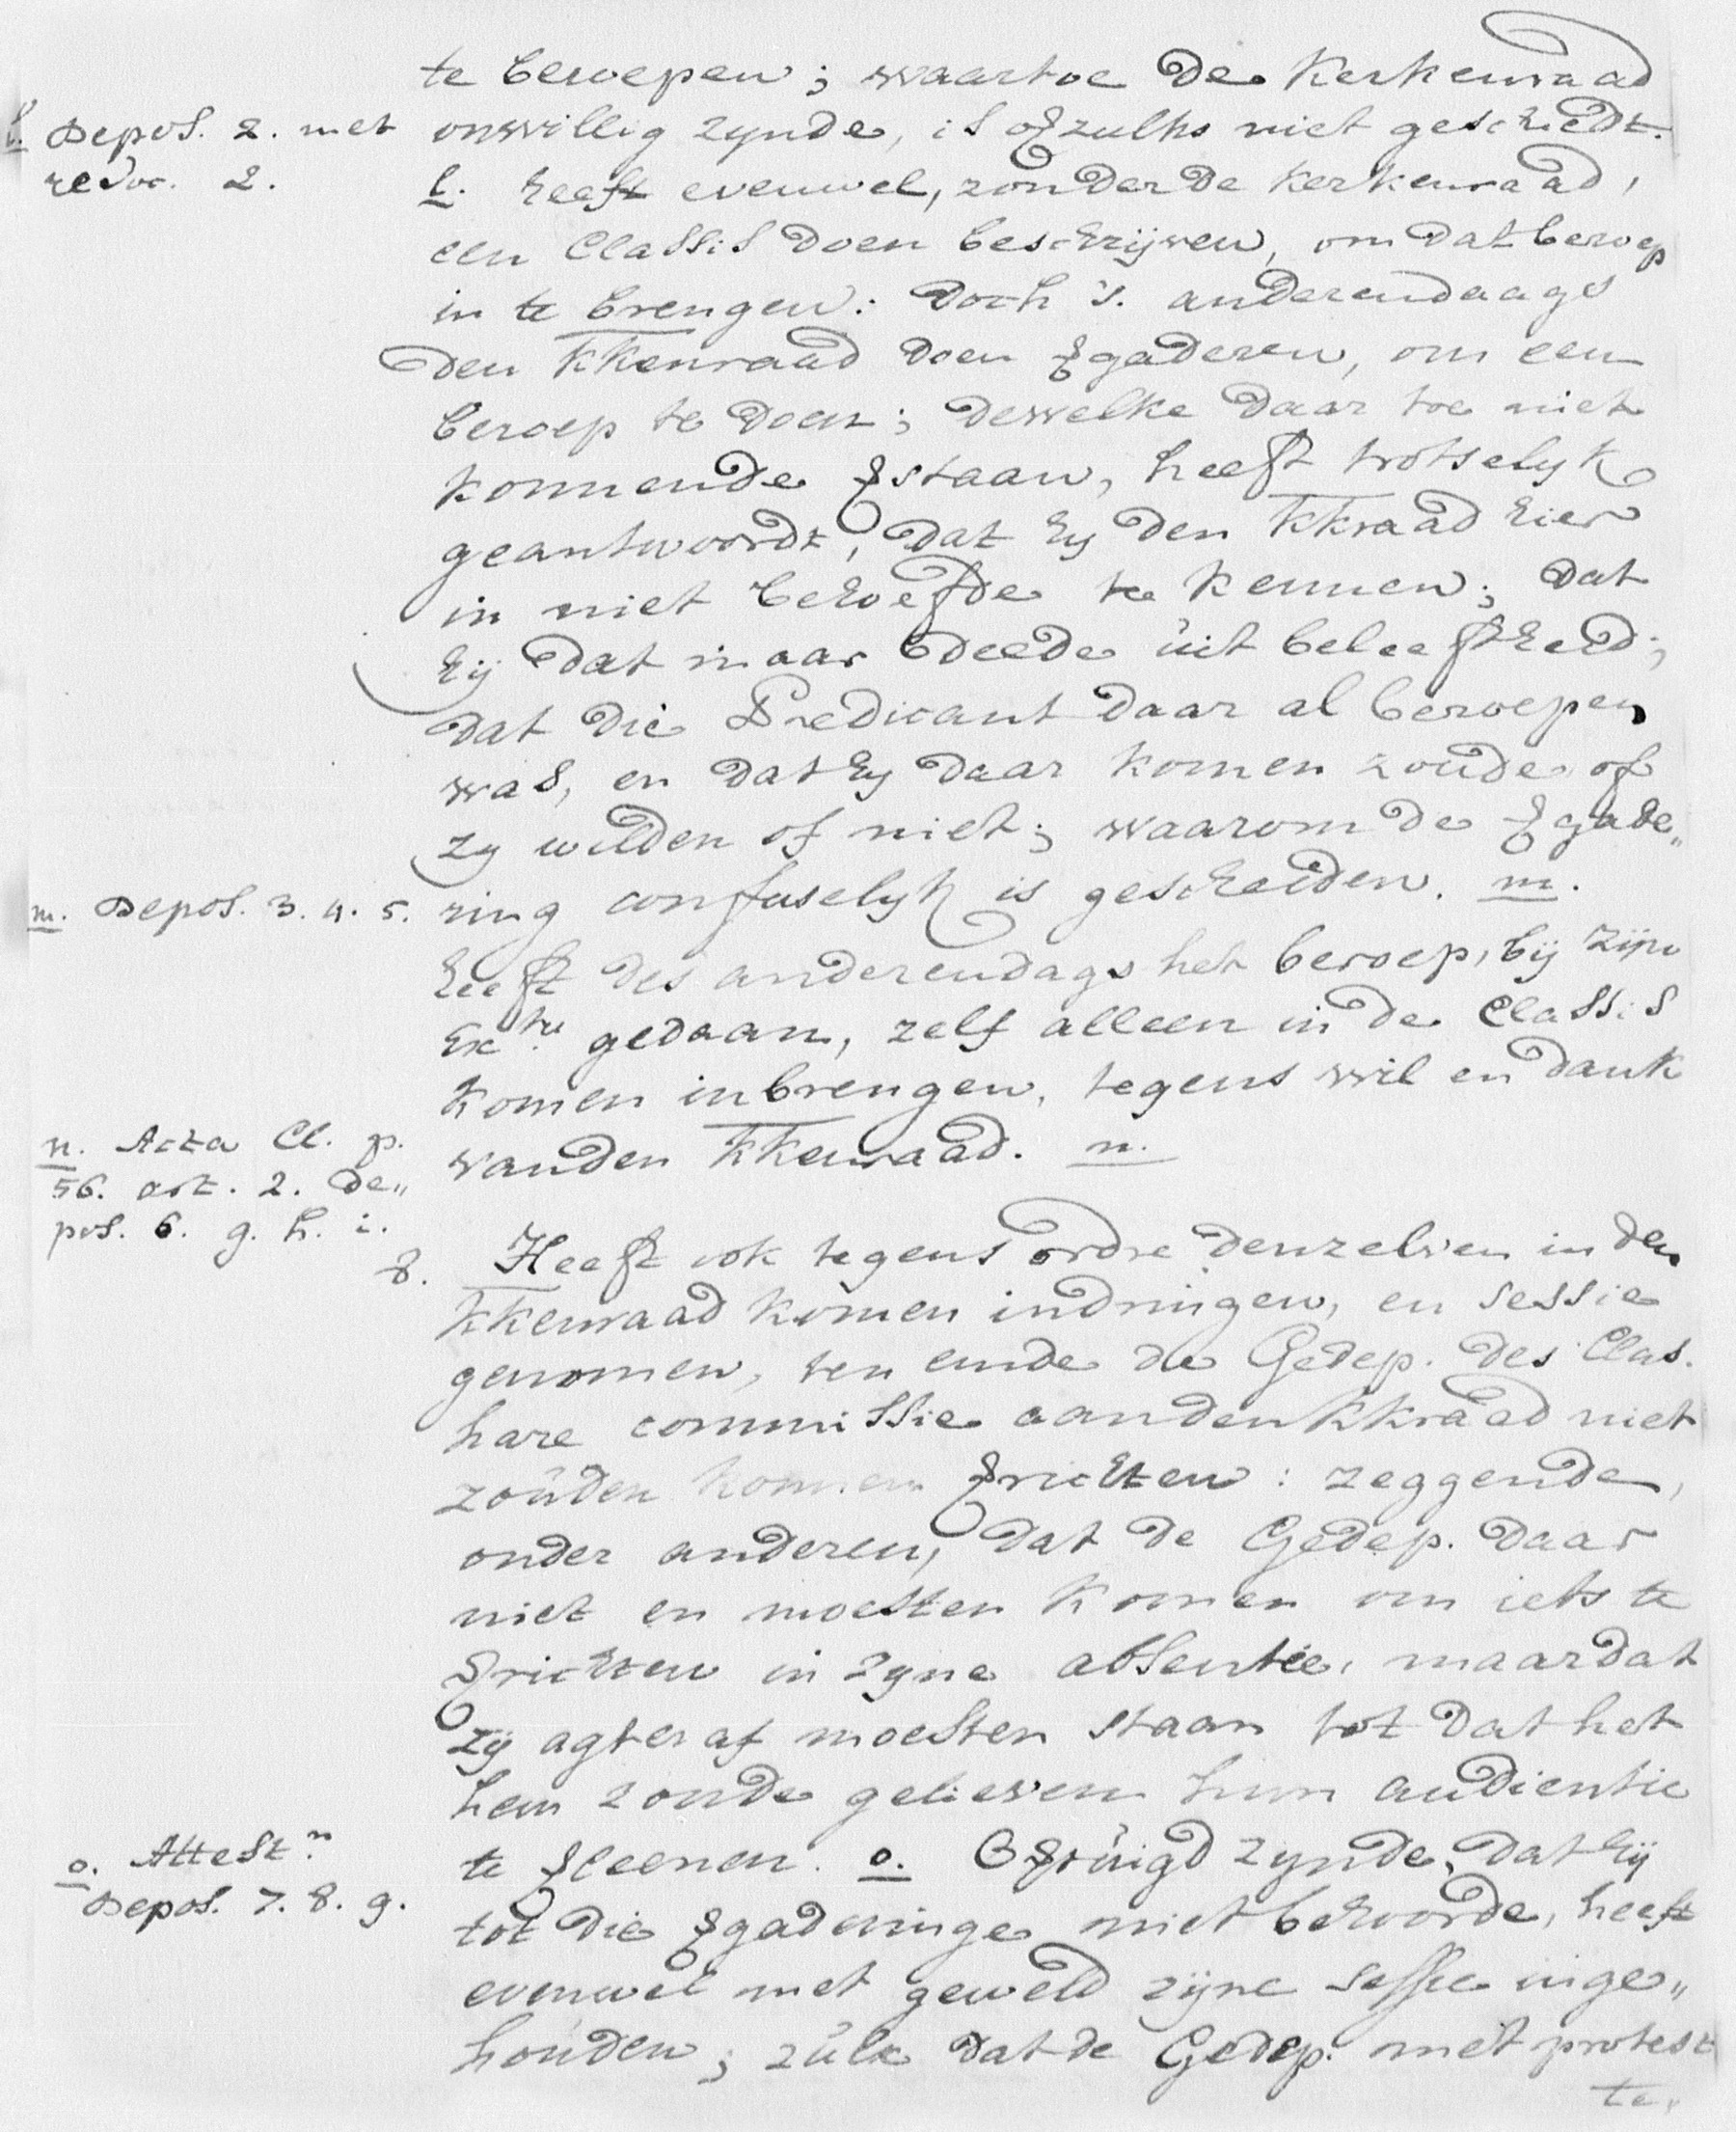 te beroepen; waartoe de Kerkenraad
l. Depos. 2. met
redoc. 2.
onwillig zynde, is ofzulks niet geschiedt.
l. heeft evenwel, zonder de Kerkenraad,
een Classis doen beschrijven, om dat beroep
in te brengen: doch 's. anderendaags
den Kkenraad doen vgaderen, om een
beroep te doen; dewelke daar toe niet
konnende vstaan, heeft trotselyk
geantwoordt, dat hy den Kkraad hier
in niet behoefde te kennen; dat
hij dat maar deede uit beleeftheid;
dat die Predicant daar al beroepen
was, en dat hy daar komen zoude of
zy wilden of niet; waarom de vgade„
m. Depos. 3. 4. 5.
ring confuselyk is gescheiden. m.
heeft des anderendags het beroep, bij zijn
Exctie gedaan, zelf alleen in de Classis
komen inbrengen, tegens wil en dank
vanden Kkenraad. n.
n. Acta Cl. p.
56. art. 2. De„
pos. 6. g. h. i.
8. Heeft ook tegens ordre denzelven in den
Kkenraad komen indringen, en sessie
genomen, ten einde de Gedep. des Clas.
hare commissie aanden Kkraad niet
zouden konnen vrichten: zeggende,
onder anderen, dat de Gedep. daar
niet en moesten komen om iets te
vrichten in zyne absentie, maar dat
zij agter af moesten staan tot dat het
hem zoude gelieven hun audientie
o. Attestn
Depos. 7. 8. 9.
te vleenen. o. Ovtuigd zynde, dat hij
tot die vgaderinge niet behoorde, heeft
evenwel met geweld zijne sessie inge„
houden; zulx dat de Gedep. met protest
te„